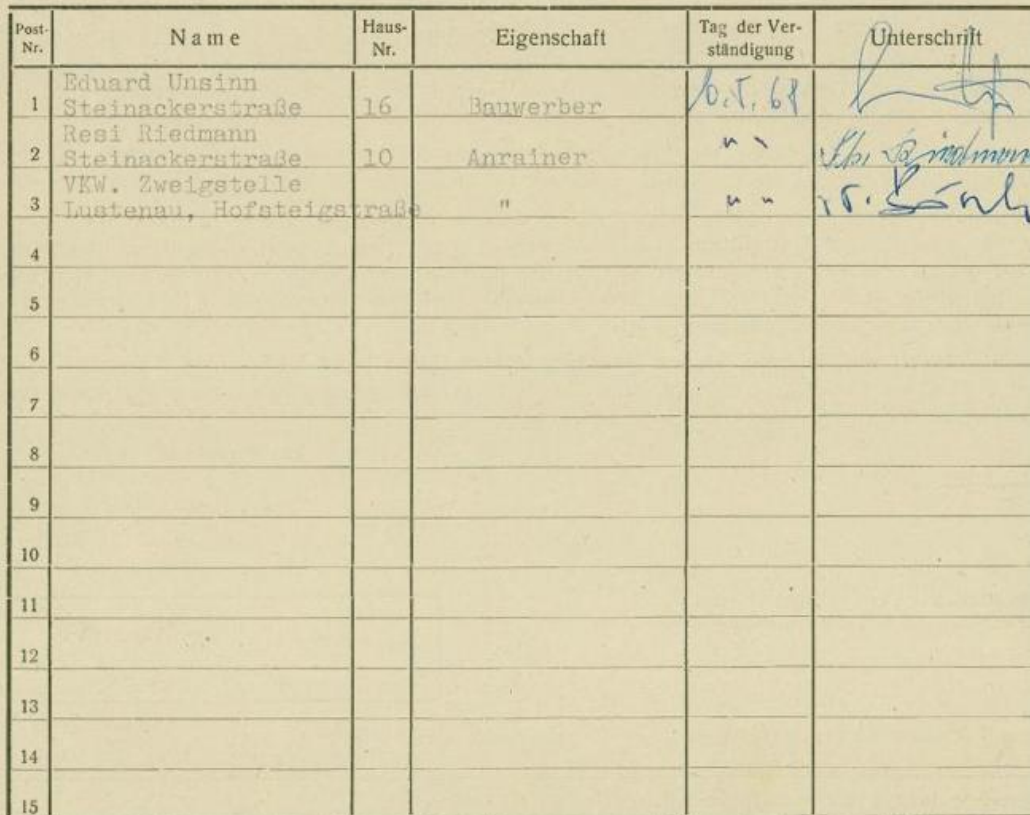 Post-Nr. Name Haus-Nr. Eigenschaft Tag der Ver-ständigung Unterschrift
Eduard Unsinn
1 Steinackerstraße 16 Bauwerber
Resi Riedmann
2 Steinackerstraße 10 Anrainer " "
VKW. Zweigstelle
3 Lustenau, Hofsteigstraße " " "
4
5
6
7
8
9
10
11
12
13
14
15